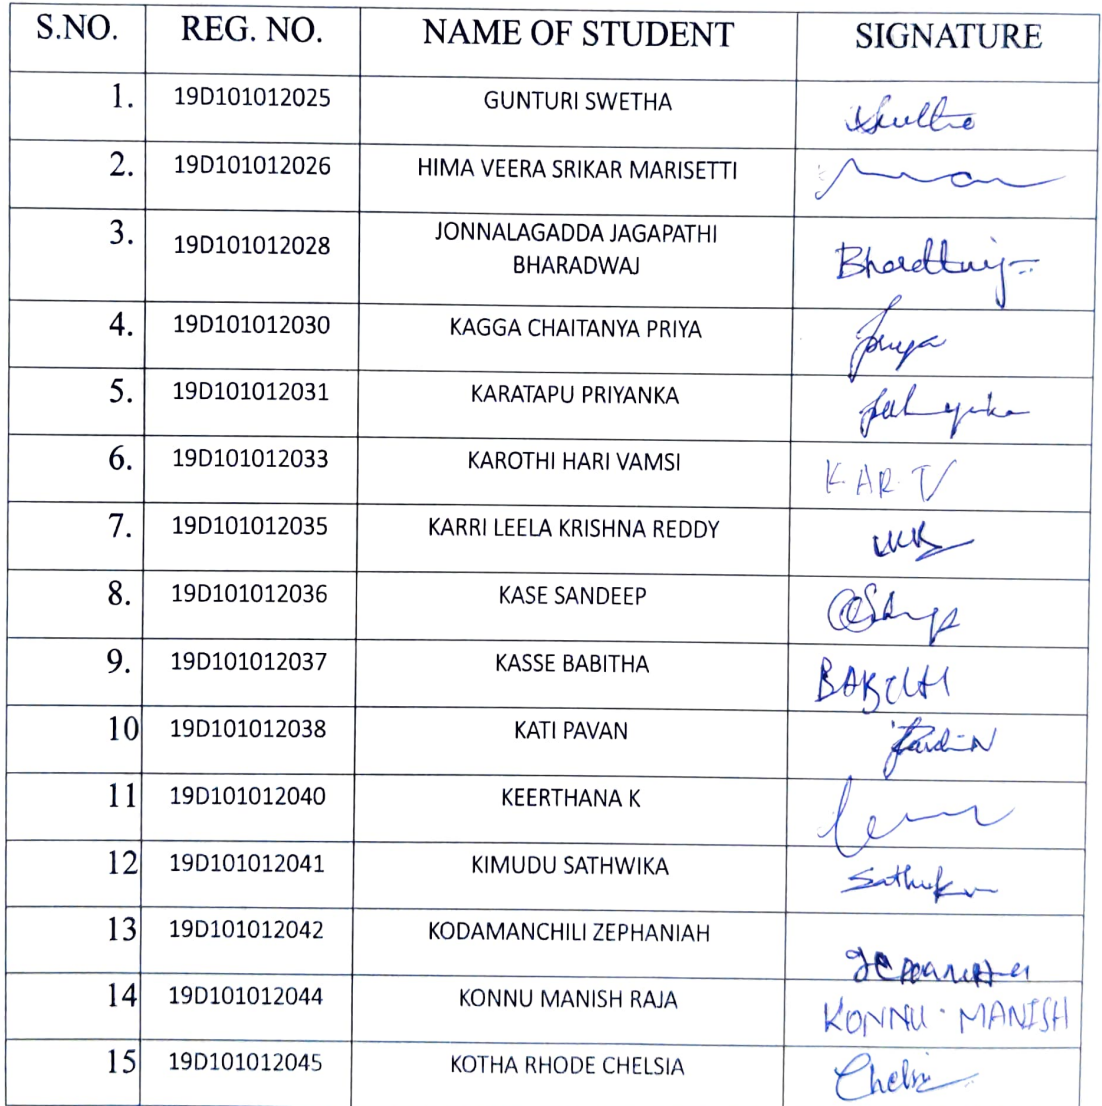 S.NO. REG. NO. NAME OF STUDENT SIGNATURE
1. 19D101012025 GUNTURI SWETHA
2. 19D101012026 HIMA VEERA SRIKAR MARISETTI
3. 19D101012028 JONNALAGADDA JAGAPATHI
BHARADWAJ
4. 19D101012030 KAGGA CHAITANYA PRIYA
5. 19D101012031 KARATAPU PRIYANKA
6. 19D101012033 KAROTHI HARI VAMSI
7. 19D101012035 KARRI LEELA KRISHNA REDDY
8. 19D101012036 KASE SANDEEP
9. 19D101012037 KASSE BABITHA
10 19D101012038 KATI PAVAN
11 19D101012040 KEERTHANA K
12 19D101012041 KIMUDU SATHWIKA
13 19D101012042 KODAMANCHILI ZEPHANIAH
14 19D101012044 KONNU MANISH RAJA KONNU. MANISH
15 19D101012045 KOTHA RHODE CHELSIA